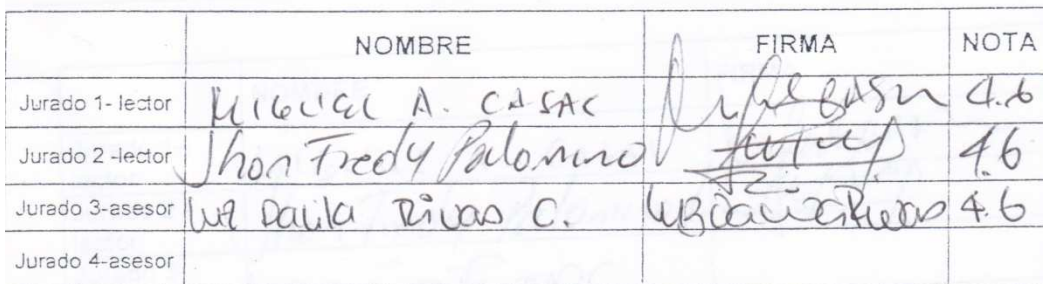 NOMBRE FIRMA NOTA
Jurado 1- lector MIGUEL A. CASAS 4.6
Jurado 2 -lector Jhon Fredy Palomino 4.6
Jurado 3-asesor Luz Danila Rivas C. 4.6
Jurado 4-asesor